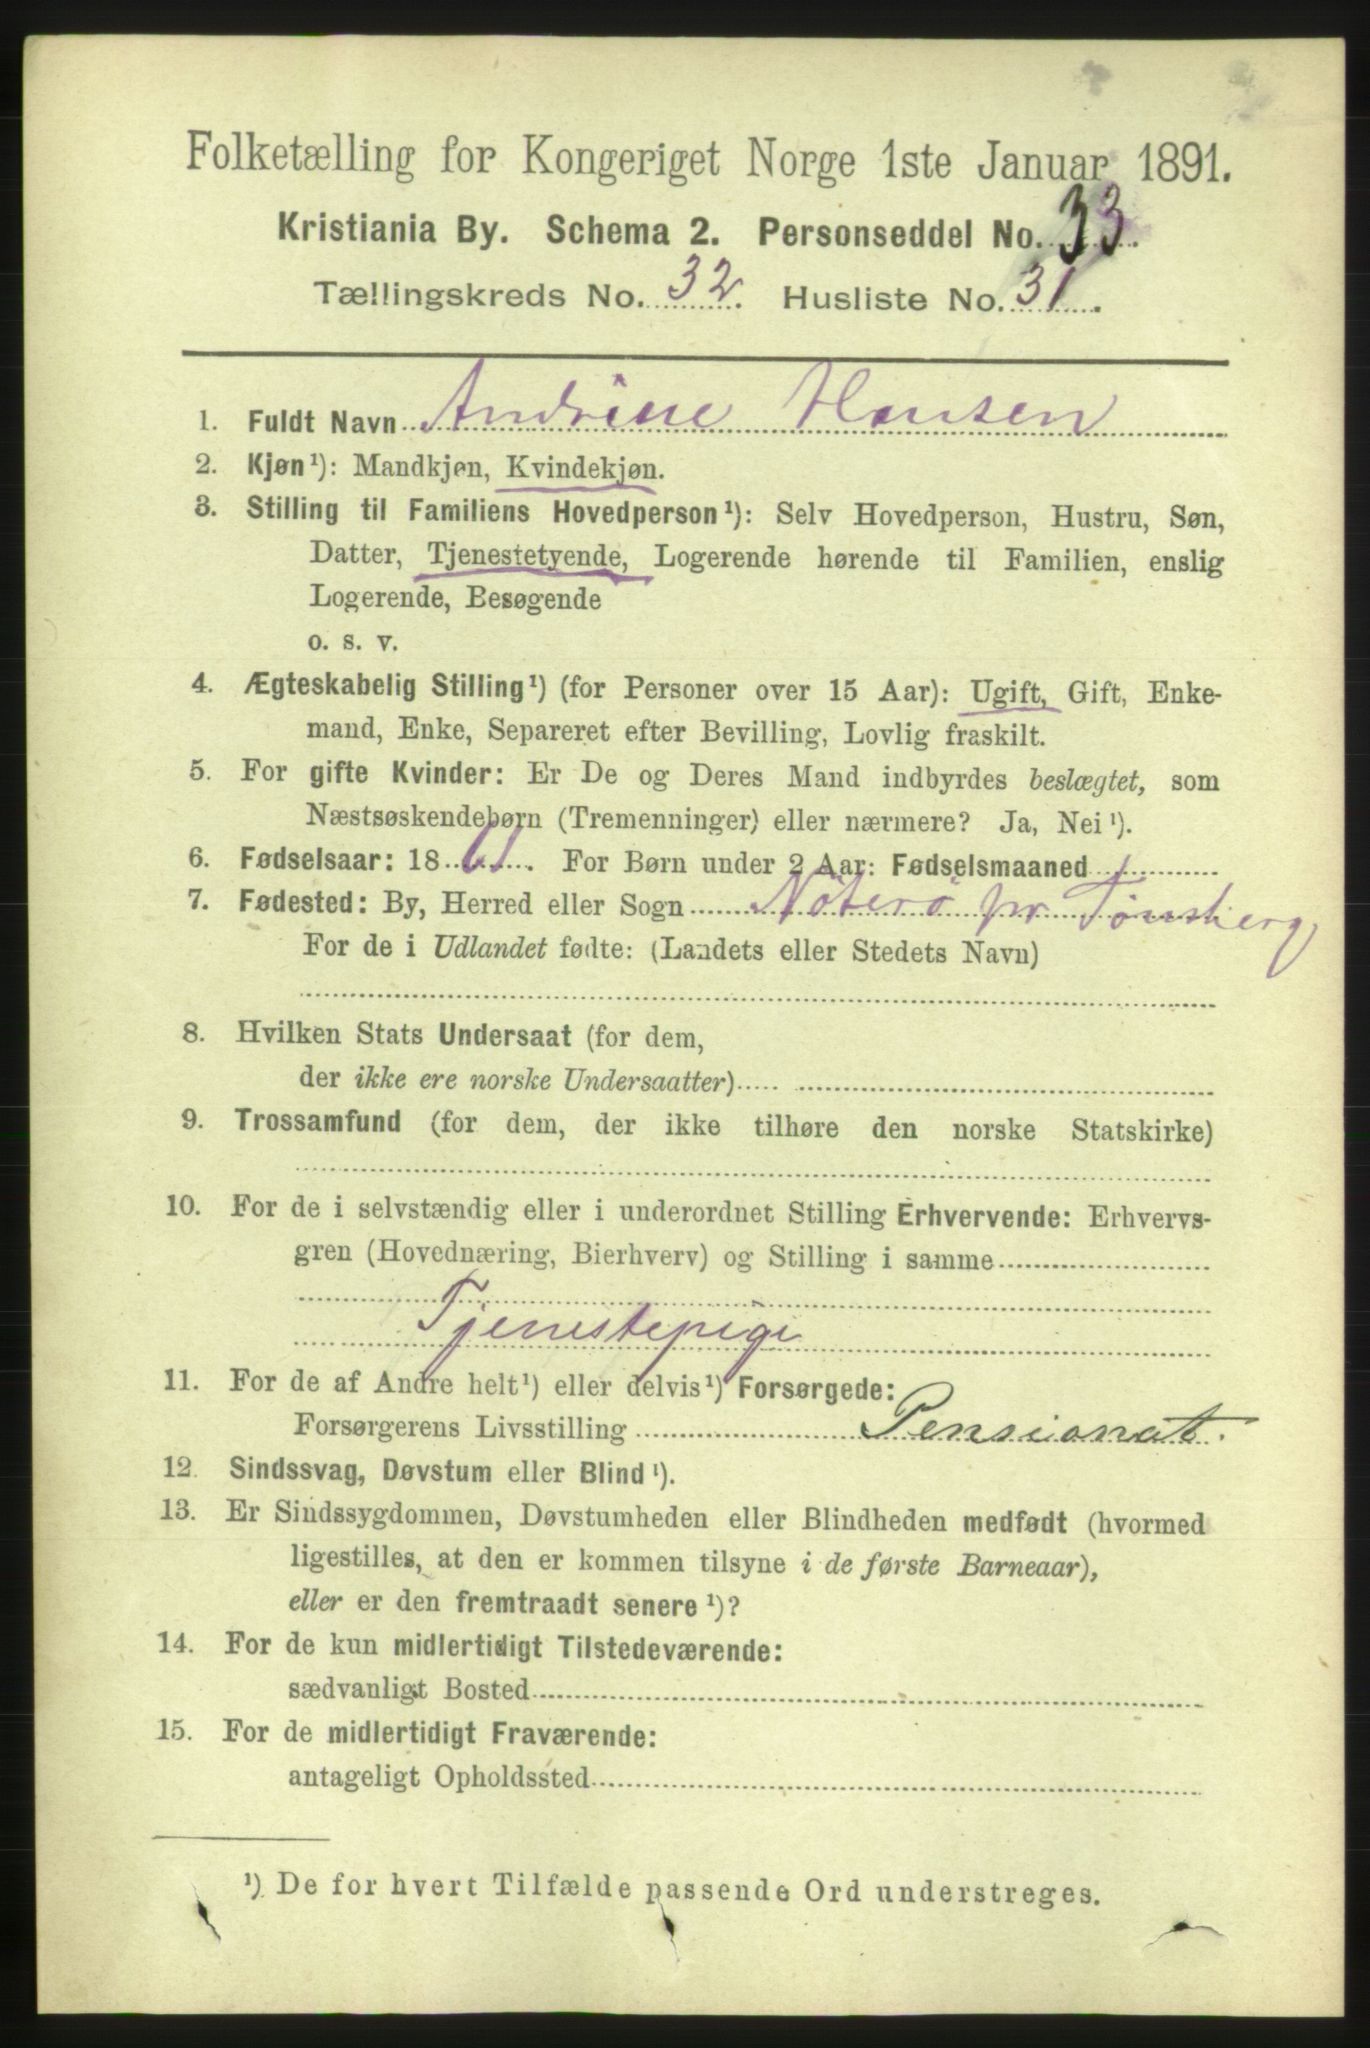 Folketælling for Kongeriget Norge 1ste Januar 1891.
Kristiania By. Schema 2. Personseddel No. 33.
Tællingskreds No. 32. Husliste No. 31.
1. Fuldt Navn Andrine Hansen
2. Kjøn¹): Mandkjøn, Kvindekjøn.
3. Stilling til Familiens Hovedperson¹): Selv Hovedperson, Hustru, Søn,
Datter, Tjenestetyende, Logerende hørende til Familien, enslig
Logerende, Besøgende
o. s. v.
4. Ægteskabelig Stilling¹) (for Personer over 15 Aar): Ugift, Gift, Enke-
mand, Enke, Separeret efter Bevilling, Lovlig fraskilt.
5. For gifte Kvinder: Er De og Deres Mand indbyrdes beslægtet, som
Næstsøskendebørn (Tremenninger) eller nærmere? Ja, Nei¹).
6. Fødselsaar: 1861. For Børn under 2 Aar: Fødselsmaaned
7. Fødested: By, Herred eller Sogn Nöterö pr Tönsberg
For de i Udlandet fødte: (Landets eller Stedets Navn)
8. Hvilken Stats Undersaat (for dem,
der ikke ere norske Undersaatter)
9. Trossamfund (for dem, der ikke tilhøre den norske Statskirke)
10. For de i selvstændig eller i underordnet Stilling Erhvervende: Erhvervs-
gren (Hovednæring, Bierhverv) og Stilling i samme
Tjenestepige
11. For de af Andre helt¹) eller delvis¹) Forsørgede:
Forsørgerens Livsstilling Pensionat.
12. Sindssvag, Døvstum eller Blind¹).
13. Er Sindssygdommen, Døvstumheden eller Blindheden medfødt (hvormed
ligestilles, at den er kommen tilsyne i de første Barneaar),
eller er den fremtraadt senere¹)?
14. For de kun midlertidigt Tilstedeværende:
sædvanligt Bosted
15. For de midlertidigt Fraværende:
antageligt Opholdssted
¹) De for hvert Tilfælde passende Ord understreges.